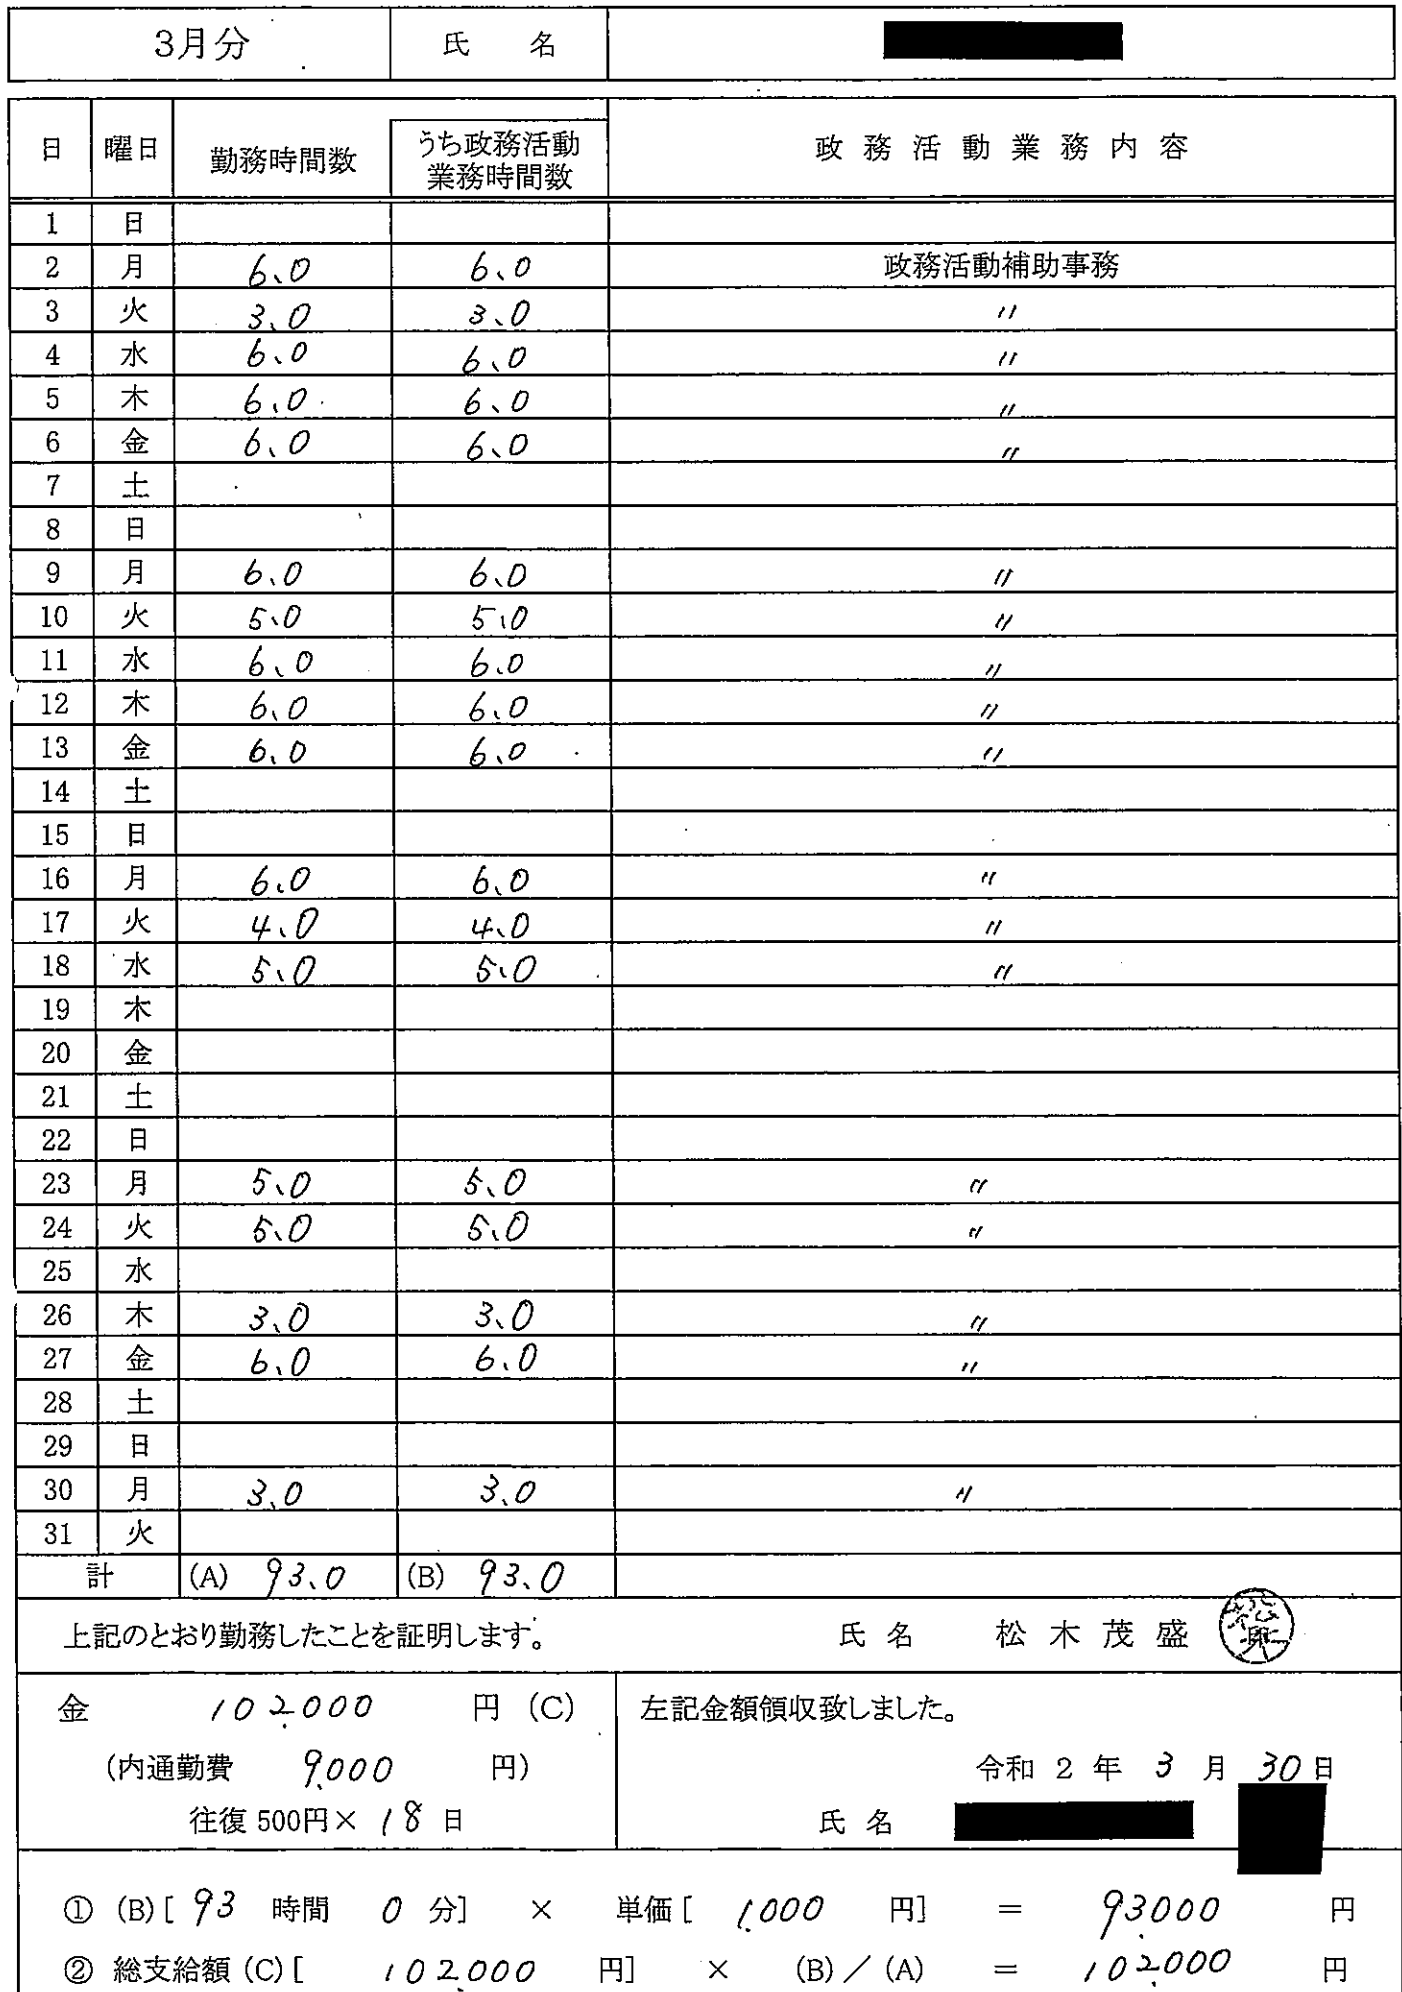 3月分 氏 名
日 曜日 勤務時間数 うち政務活動業務時間数 政務活動業務内容
1 日
2 月 6.0 6.0 政務活動補助事務
3 火 3.0 3.0 〃
4 水 6.0 6.0 〃
5 木 6.0 6.0 〃
6 金 6.0 6.0 〃
7 土
8 日
9 月 6.0 6.0 〃
10 火 5.0 5.0 〃
11 水 6.0 6.0 〃
12 木 6.0 6.0 〃
13 金 6.0 6.0 〃
14 土
15 日
16 月 6.0 6.0 〃
17 火 4.0 4.0 〃
18 水 5.0 5.0 〃
19 木
20 金
21 土
22 日
23 月 5.0 5.0 〃
24 火 5.0 5.0 〃
25 水
26 木 3.0 3.0 〃
27 金 6.0 6.0 〃
28 土
29 日
30 月 3.0 3.0 〃
31 火
計 (A) 93.0 (B) 93.0
上記のとおり勤務したことを証明します。 氏 名 松 木 茂 盛
金 102,000 円 (C) 左記金額領収致しました。
(内通勤費 9,000 円) 令和 2 年 3 月 30 日
往復 500円× 18 日 氏 名
① (B)[ 93 時間 0 分] × 単価[ 1,000 円] = 93,000 円
② 総支給額 (C)[ 102,000 円] × (B)／(A) = 102,000 円